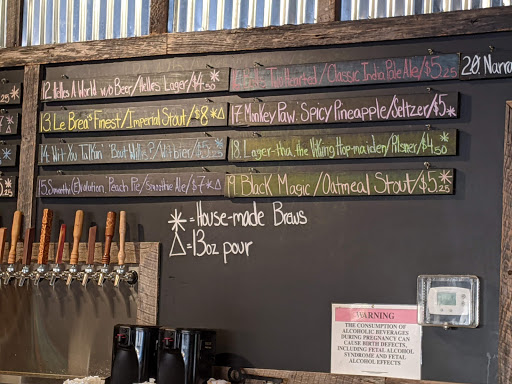 12. Helles A World w/o Beer/Helles Lager/$4.50 *
13. Le Brea's Finest/Imperial Stout/$8 *△
Wit-You Thinkin' 'Bout Willis?/Witbier/$5.25
15. Smoothie (E)volution 'Peach Pie'/Smoothie Ale/$7 *△
Two Hearted/Classic India Pale Ale/$5.25
17. Monkey Paw. Spicy Pineapple/Seltzer/$5 *
18. Lager-tha, the Viking Hop-maiden/Pilsner/$4.50 *
19. Black Magic/Oatmeal Stout/$5.25 *
20. Narra
* = House-made Brews
△ = 13oz pour
WARNING
THE CONSUMPTION OF
ALCOHOLIC BEVERAGES
DURING PREGNANCY CAN
CAUSE BIRTH DEFECTS,
INCLUDING FETAL ALCOHOL
SYNDROME AND FETAL
ALCOHOL EFFECTS